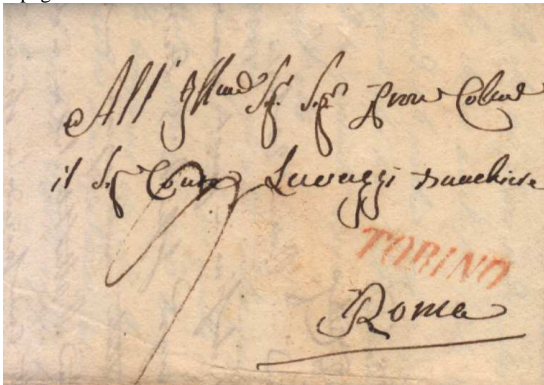 All' Illmo Sig. Sigr Pron Colmo
il Sig Conte Lavaggi Banchiere
TORINO
Roma